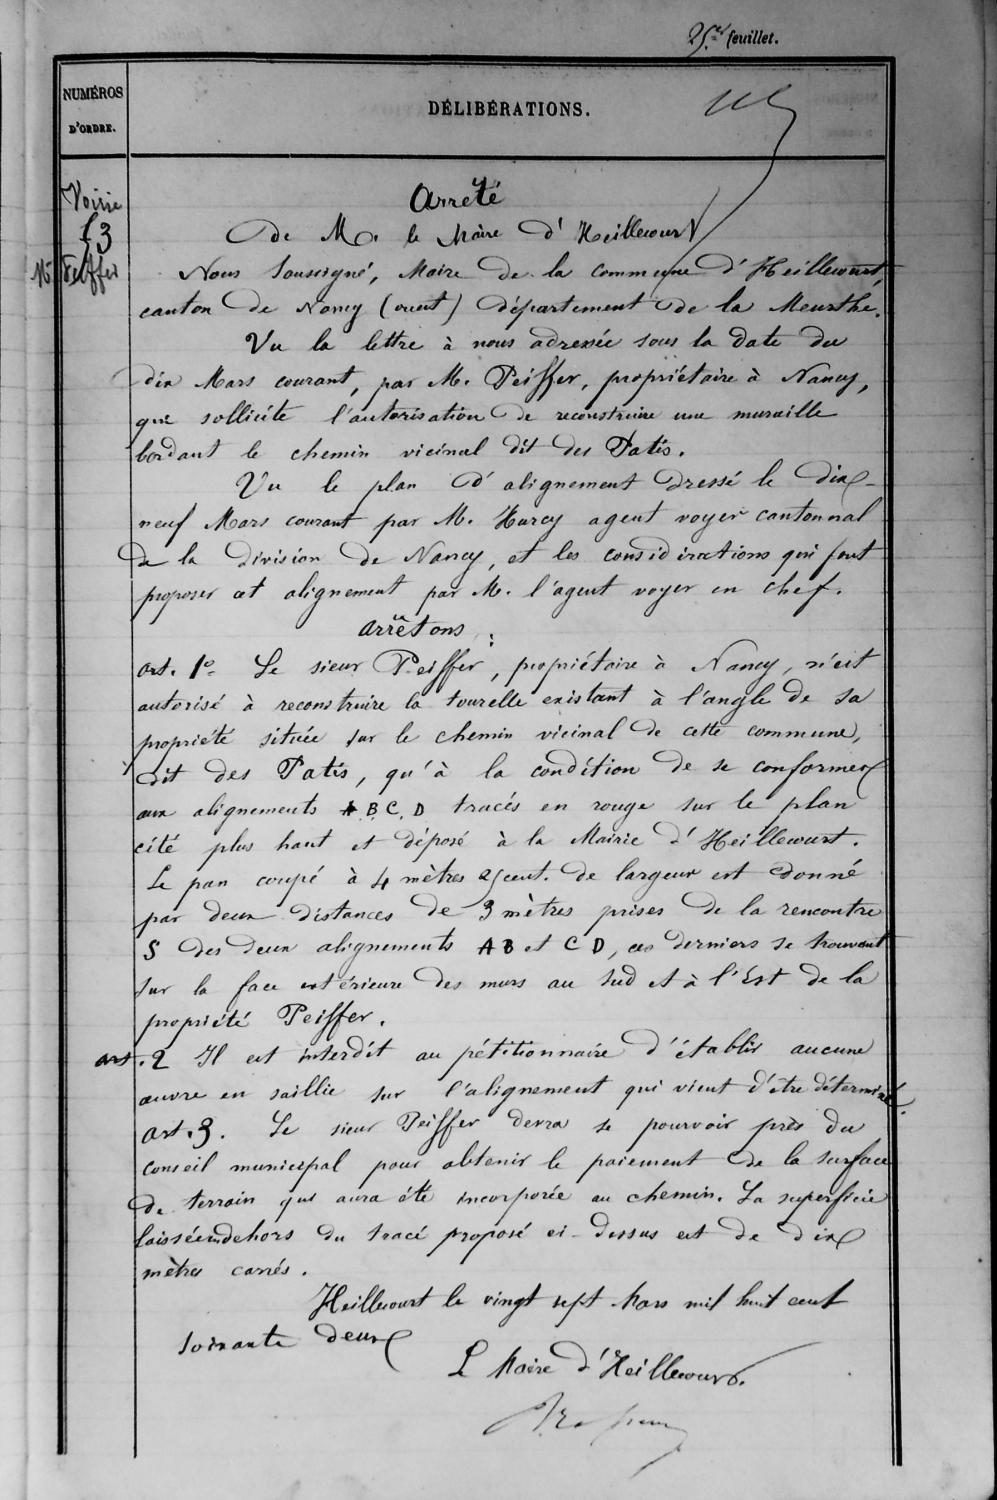 25.e feuillet.
NUMÉROS
D'ORDRE.
DÉLIBÉRATIONS.
Voirie
f 3
Mr Peiffer
Arrêté
De M. le Maire d'Heillecourt
Nous Soussigné, Maire de la commune d'Heillecourt,
canton de Nancy (ouest) département de la Meurthe.
Vu la lettre à nous adressée sous la date du
dix Mars courant, par M. Peiffer, propriétaire à Nancy,
qui sollicite l'autorisation de reconstruire une muraille
bordant le chemin vicinal dit des Patis.
Vu le plan d'alignement dressé le dix-
neuf Mars courant par M. Harcy agent voyer cantonnal
de la division de Nancy, et les considérations qui font
proposer cet alignement par M. l'agent voyer en chef.
arrêtons :
art. 1º Le sieur Peiffer, propriétaire à Nancy, n'est
autorisé à reconstruire la tourelle existant à l'angle de sa
propriété située sur le chemin vicinal de cette commune,
dit des Patis, qu'à la condition de se conformer
aux alignements A B C D tracés en rouge sur le plan
cité plus haut et déposé à la Mairie d'Heillecourt.
Le pan coupé à 4 mètres 25 cent. de largeur est donné
par deux distances de 3 mètres prises de la rencontre
S des deux alignements A B et C D, ces derniers se trouvant
sur la face extérieure des murs au sud et à l'Est de la
propriété Peiffer.
art. 2 Il est interdit au pétitionnaire d'établir aucune
œuvre en saillie sur l'alignement qui vient d'être déterminé.
art. 3. Le sieur Peiffer devra se pourvoir près du
conseil municipal pour obtenir le paiement de la surface
de terrain qui aura été incorporée au chemin. La superficie
laissée en dehors du tracé proposé ci-dessus est de dix
mètres carrés.
Heillecourt le vingt sept Mars mil huit cent
soixante deux
L Maire d'Heillecourt.